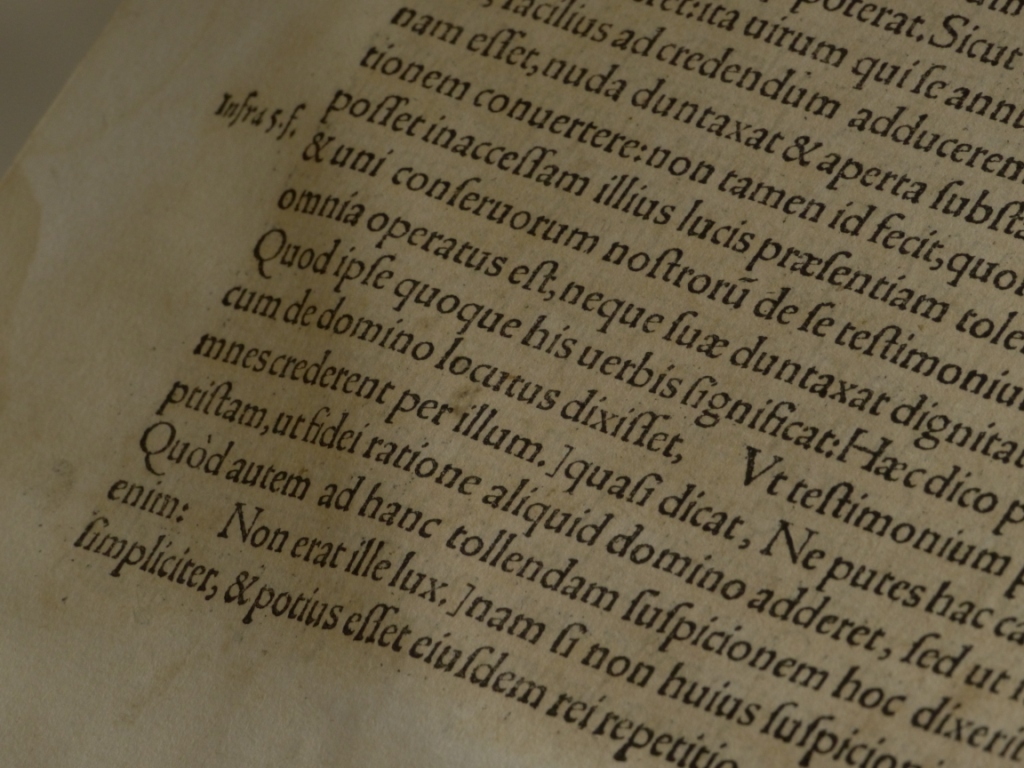 poterat. Sicut
ret:ita uirum qui ſe annu
facilius ad credendum adducerem
nam eſſet, nuda duntaxat & aperta ſubſta
tionem conuertere: non tamen id fecit, quo
Infra 5.f.
poſſet inacceſſam illius lucis præſentiam tole
& uni conſeruorum noſtrorũ de ſe teſtimoniu
omnia operatus eſt, neque ſuæ duntaxat dignitat
Quod ipſe quoque his uerbis ſignificat: Hæc dico p
cum de domino locutus dixiſſet, Vt teſtimonium p
mnes crederent per illum.] quaſi dicat, Ne putes hac ca
ptiſtam, ut fidei ratione aliquid domino adderet, ſed ut
Quòd autem ad hanc tollendam ſuſpicionem hoc dixerit
enim: Non erat ille lux.] nam ſi non huius ſuſpicion
ſimpliciter, & potius eſſet eiuſdem rei repetitio